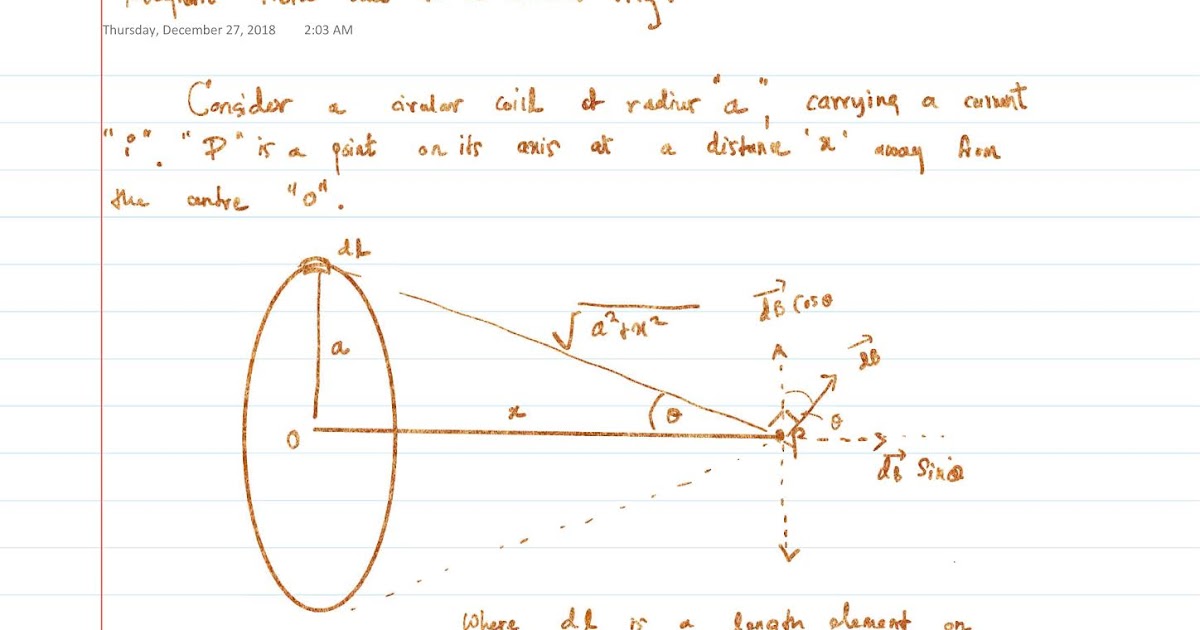 Thursday, December 27, 2018 2:03 AM
Consider a circular coil of radius "a", carrying a current
"i". "P" is a point on its axis at a distance 'x' away from
the centre "O".
dl
dB Cosθ
√a²+x²
dB
a
x
θ
θ
O
P
dB Sinθ
Where dl is a length element on